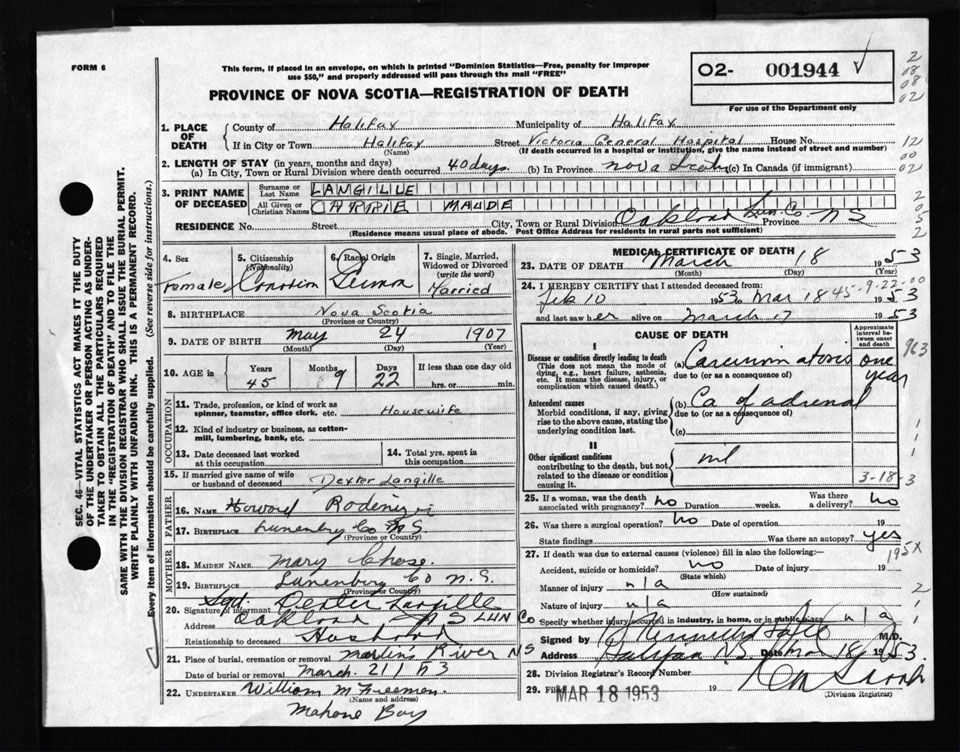 FORM 6
This form, if placed in an envelope, on which is printed "Dominion Statistics—Free, penalty for improper
use $50," and properly addressed will pass through the mail "FREE"
O2- 001944
For use of the Department only
PROVINCE OF NOVA SCOTIA—REGISTRATION OF DEATH
1. PLACE OF DEATH
County of Halifax Municipality of Halifax
If in City or Town Halifax Street Victoria General Hospital House No.
(Name) (If death occurred in a hospital or institution, give the name instead of street and number)
2. LENGTH OF STAY (in years, months and days)
(a) In City, Town or Rural Division where death occurred 40 days. (b) In Province Nova Scotia (c) In Canada (if immigrant)
3. PRINT NAME OF DECEASED
Surname or Last Name LANGILLE
All Given or Christian Names CARRIE MAUDE
RESIDENCE No. Street City, Town or Rural Division Oakland Lun. Co. Province NS
(Residence means usual place of abode. Post Office Address for residents in rural parts not sufficient)
SEC. 46—VITAL STATISTICS ACT MAKES IT THE DUTY
OF THE UNDERTAKER OR PERSON ACTING AS UNDER-
TAKER TO OBTAIN ALL THE PARTICULARS REQUIRED
IN THE "REGISTRATION OF DEATH" AND TO FILE THE
SAME WITH THE DIVISION REGISTRAR WHO SHALL ISSUE THE BURIAL PERMIT.
WRITE PLAINLY WITH UNFADING INK. THIS IS A PERMANENT RECORD.
Every item of information should be carefully supplied. (See reverse side for instructions.)
4. Sex Female
5. Citizenship (Nationality) Canadian
6. Racial Origin German
7. Single, Married, Widowed or Divorced (write the word) Married
8. BIRTHPLACE Nova Scotia
(Province or Country)
9. DATE OF BIRTH May 24 1907
(Month) (Day) (Year)
10. AGE in Years 45 Months 9 Days 22 If less than one day old hrs. or min.
OCCUPATION
11. Trade, profession or kind of work as
spinner, teamster, office clerk, etc. Housewife
12. Kind of industry or business, as cotton-
mill, lumbering, bank, etc.
13. Date deceased last worked at this occupation
14. Total yrs. spent in this occupation
15. If married give name of wife or husband of deceased Dexter Langille
FATHER
16. Name Howard Rodenizer
17. BIRTHPLACE Lunenburg Co N.S.
(Province or Country)
MOTHER
18. MAIDEN NAME Mary Chase.
19. BIRTHPLACE Lunenburg Co N.S.
(Province or Country)
20. Signature of informant Sgd. Dexter Langille
Address Oakland N S LUN Co
Relationship to deceased Husband
21. Place of burial, cremation or removal Martins River NS
Date of burial or removal March. 21 / 53
22. UNDERTAKER William M Freeman.
(Name and address)
Mahone Bay
MEDICAL CERTIFICATE OF DEATH
23. DATE OF DEATH March 18 1953
(Month) (Day) (Year)
24. I HEREBY CERTIFY that I attended deceased from:
Feb 10 1953 to Mar 18 1953
45-9-22-00
and last saw her alive on March 17 1953
CAUSE OF DEATH
Approximate interval between onset and death
I
Disease or condition directly leading to death
(This does not mean the mode of dying, e.g., heart failure, asthenia, etc. It means the disease, injury, or complication which caused death.)
(a) Carcinomatosis one year
due to (or as a consequence of)
Antecedent causes
Morbid conditions, if any, giving rise to the above cause, stating the underlying condition last.
(b) Ca of adrenal
due to (or as a consequence of)
(c)
II
Other significant conditions
contributing to the death, but not related to the disease or condition causing it.
nil
3-18-3
25. If a woman, was the death associated with pregnancy? no Duration weeks. Was there a delivery? no
26. Was there a surgical operation? no Date of operation 19
State findings Was there an autopsy? yes
27. If death was due to external causes (violence) fill in also the following:—
195X
Accident, suicide or homicide? no Date of injury 19
(State which)
Manner of injury n/a
(How sustained)
Nature of injury n/a
Specify whether injury occurred in industry, in home, or in public place n/a
Signed by M.D.
Address Halifax N.S. Date Mar 18 1953.
28. Division Registrar's Record Number
29. Filed MAR 18 1953 19
(Division Registrar)
2
08
08
02
12
00
02
2
05
2
2
963
1
1
1
2
1